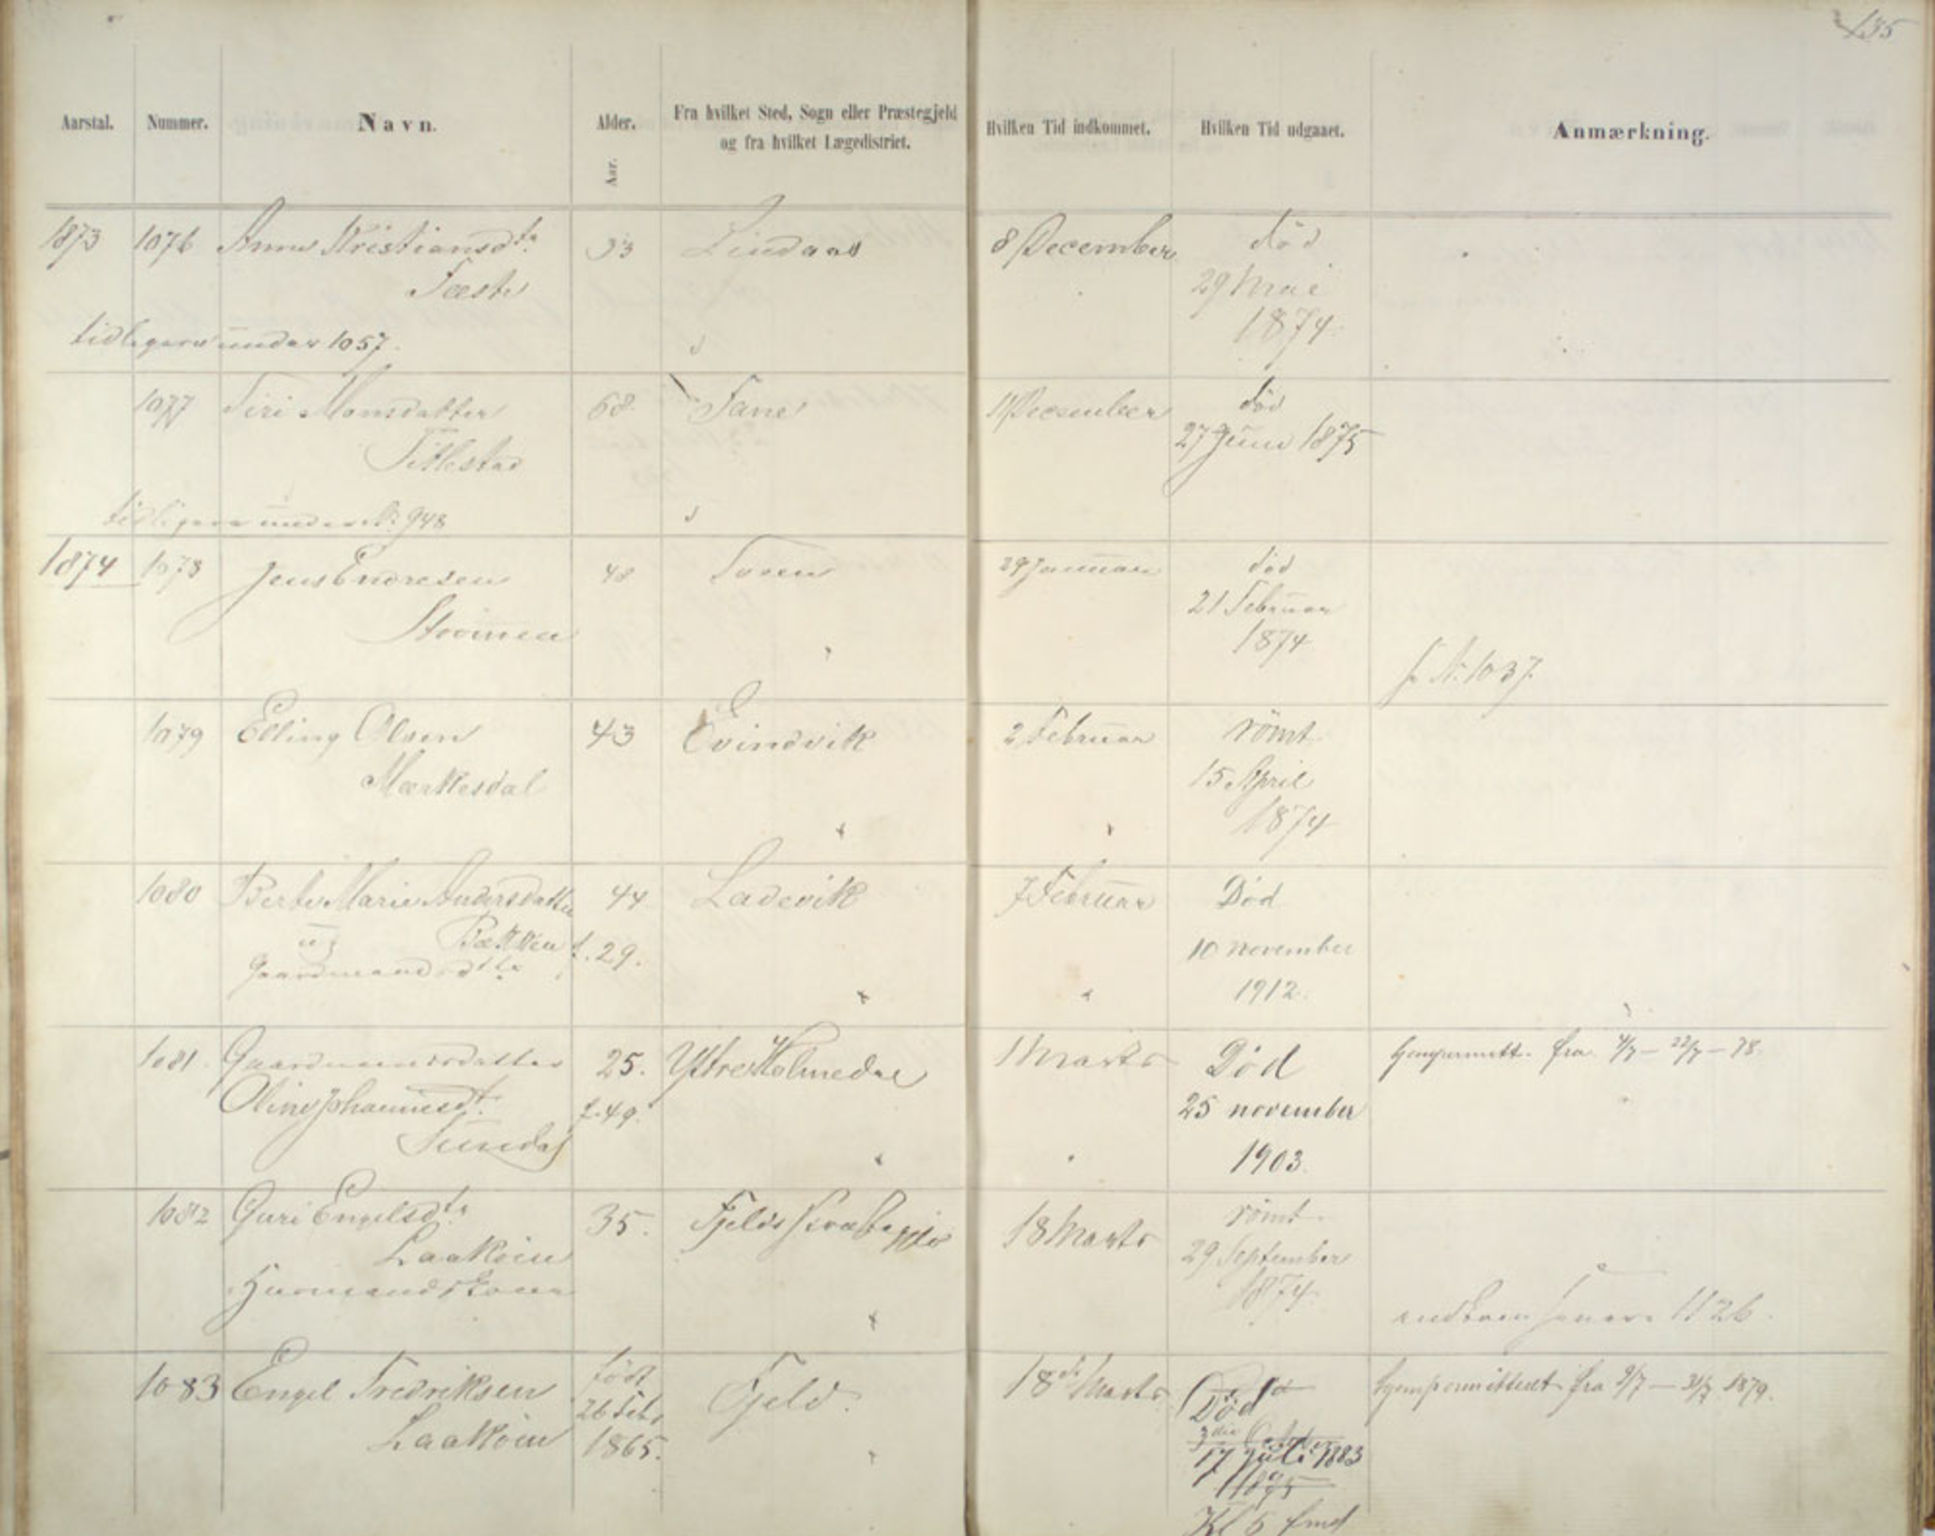 135
Aarstal. Nummer. Navn. Alder. Aar. Fra hvilket Sted, Sogn eller Præstegjeld og fra hvilket Lægedistrict. Hvilken Tid indkommet. Hvilken Tid udgaaet. Anmærkning.
1873 1076 Anna Kristiansdtr 53 Lindaas 8 December död
Fæste 29 Mai
1874
tidligere under 1057.
1077 Siri Monsdatter 68 Fane 11 December död
Titlestad 27 Juni 1875
tidligere under N. 948
1874 1078 Jens Endresen 48 29 Januar död
Strömmen 21 Februar
1874
N. 1037.
1079 Elling Olsen 43 Evindvik 2 Februar römt
15 April
1874
1080 Berte Marie Andersdatter 44 Ladevik 7 Februar Död
ug Bækken f. 29. 10 november
Gaardmandsdtr 1912.
1081. Gaardmandsdatter 25. Yttre Holmedal 1 Marts Död hjempermitt. fra 4/7 – 22/7 – 78.
Oline Johannesdt. f. 49. 25 november
Sundal 1903.
1082 Guri Engelsdtr 35. Fjelds 18 Marts römt
Laaköin 29 September
Huusmandskone 1874.
indkom senere 1126.
1083 Engel Fredriksen födt Fjeld. 18de Marts Död hjempermitteret fra 9/7 – 31/7 1879.
Laaköin 26 Feb. 17 Juli 1883
1865. Kl 5 fmd